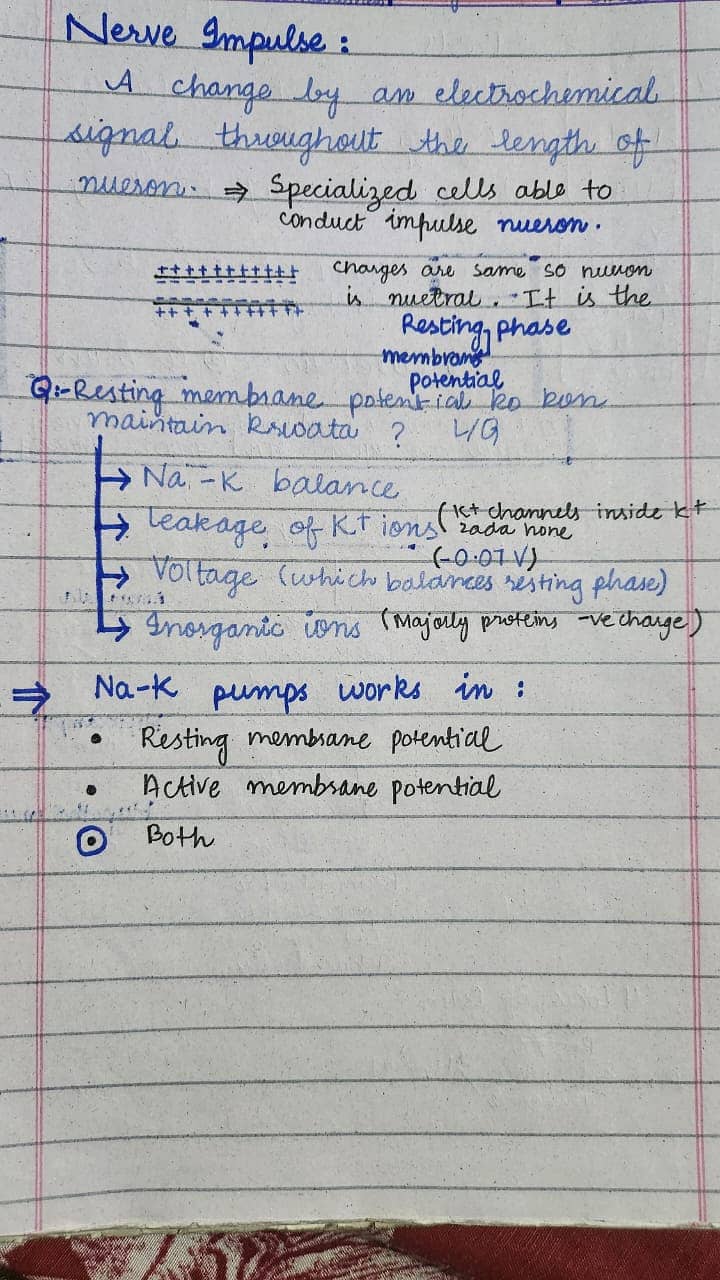 Nerve Impulse :
A change by an electrochemical
signal throughout the length of
nueron. ⇒ Specialized cells able to
conduct impulse nueron.
+++++++++++ charges are same so nueron
is nuetral. It is the
+++++++++++ Resting phase
membrane
potential
Q:- Resting membrane potential ko kon
maintain krwata ? L/Q
→ Na-K balance
→ Leakage of K+ ions (K+ channels inside K+
zada hone
(-0.07 V)
→ Voltage (which balances resting phase)
→ Inorganic ions (Majorly proteins -ve charge)
⇒ Na-K pumps works in :
• Resting membrane potential
• Active membrane potential
⊙ Both